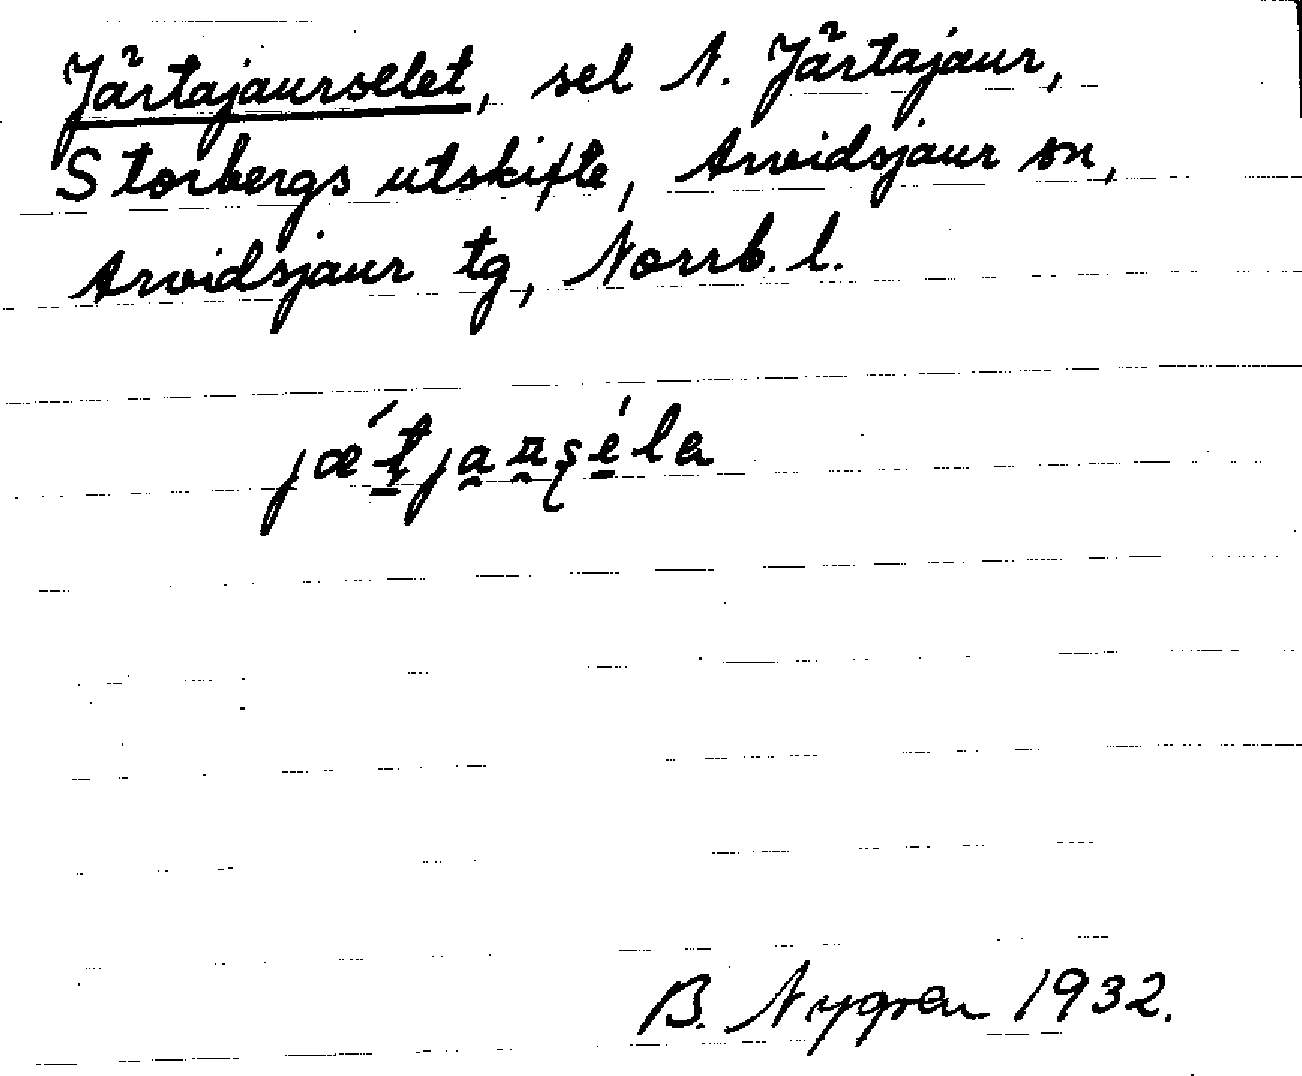 Järtajaurselet, sel N. Järtajaur,
Storbergs utskifte, Arvidsjaur sn,
Arvidsjaur tg, Norrb. l.
B. Nygren 1932.